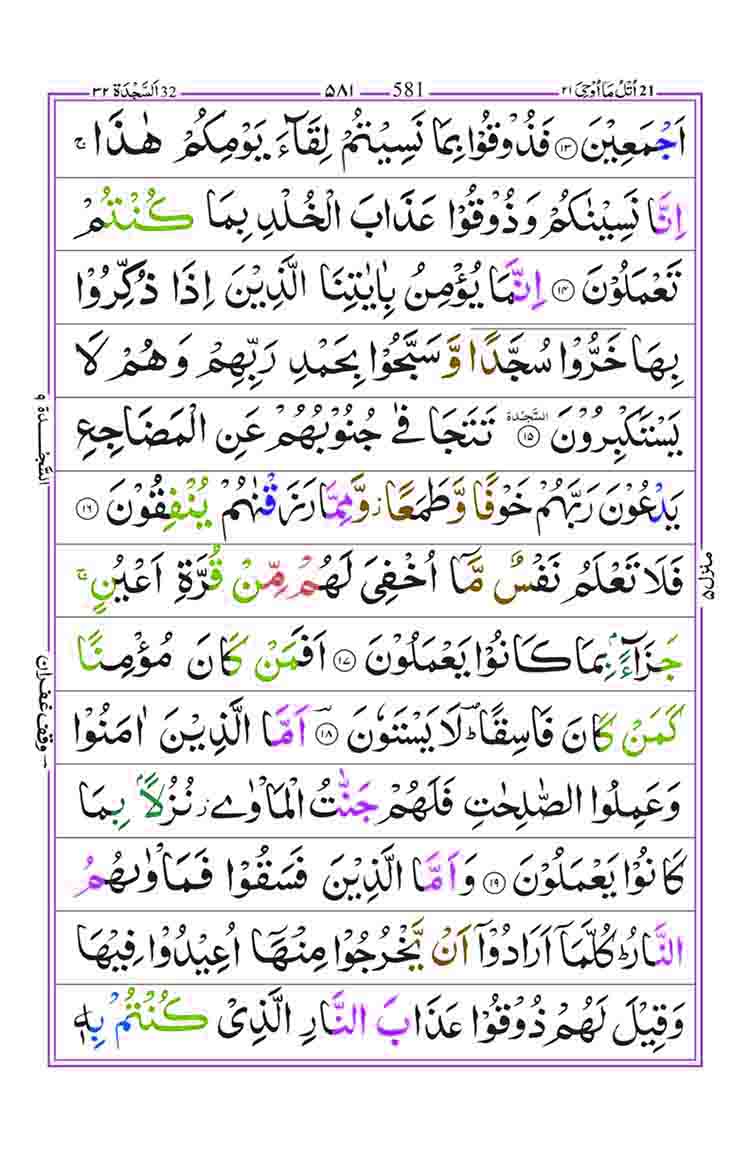 21 اُتْلُ مَا اُوْحِیَ ۲۱ 581 ۵۸۱ 32 اَلسَّجْدَة ۳۲
اَجْمَعِیْنَ ۝۱۳ فَذُوْقُوْا بِمَا نَسِیْتُمْ لِقَآءَ یَوْمِكُمْ هٰذَا ۚ
اِنَّا نَسِیْنٰكُمْ وَ ذُوْقُوْا عَذَابَ الْخُلْدِ بِمَا كُنْتُمْ
تَعْمَلُوْنَ ۝۱۴ اِنَّمَا یُؤْمِنُ بِاٰیٰتِنَا الَّذِیْنَ اِذَا ذُكِّرُوْا
بِهَا خَرُّوْا سُجَّدًا وَّ سَبَّحُوْا بِحَمْدِ رَبِّهِمْ وَ هُمْ لَا
یَسْتَكْبِرُوْنَ ۝۱۵ السَّجْدَة تَتَجَافٰی جُنُوْبُهُمْ عَنِ الْمَضَاجِعِ
یَدْعُوْنَ رَبَّهُمْ خَوْفًا وَّ طَمَعًا ؗ وَّ مِمَّا رَزَقْنٰهُمْ یُنْفِقُوْنَ ۝۱۶
فَلَا تَعْلَمُ نَفْسٌ مَّاۤ اُخْفِیَ لَهُمْ مِّنْ قُرَّةِ اَعْیُنٍ ۚ
جَزَآءًۢ بِمَا كَانُوْا یَعْمَلُوْنَ ۝۱۷ اَفَمَنْ كَانَ مُؤْمِنًا
كَمَنْ كَانَ فَاسِقًا ؕؔ لَا یَسْتَوٗنَ ۝۱۸ اَمَّا الَّذِیْنَ اٰمَنُوْا
وَ عَمِلُوا الصّٰلِحٰتِ فَلَهُمْ جَنّٰتُ الْمَاْوٰی ؗ نُزُلًۢا بِمَا
كَانُوْا یَعْمَلُوْنَ ۝۱۹ وَ اَمَّا الَّذِیْنَ فَسَقُوْا فَمَاْوٰىهُمُ
النَّارُ ؕ كُلَّمَاۤ اَرَادُوْۤا اَنْ یَّخْرُجُوْا مِنْهَاۤ اُعِیْدُوْا فِیْهَا
وَ قِیْلَ لَهُمْ ذُوْقُوْا عَذَابَ النَّارِ الَّذِیْ كُنْتُمْ بِهٖ
السَّجْدَة ۹
وقف غفران
منزل ۵